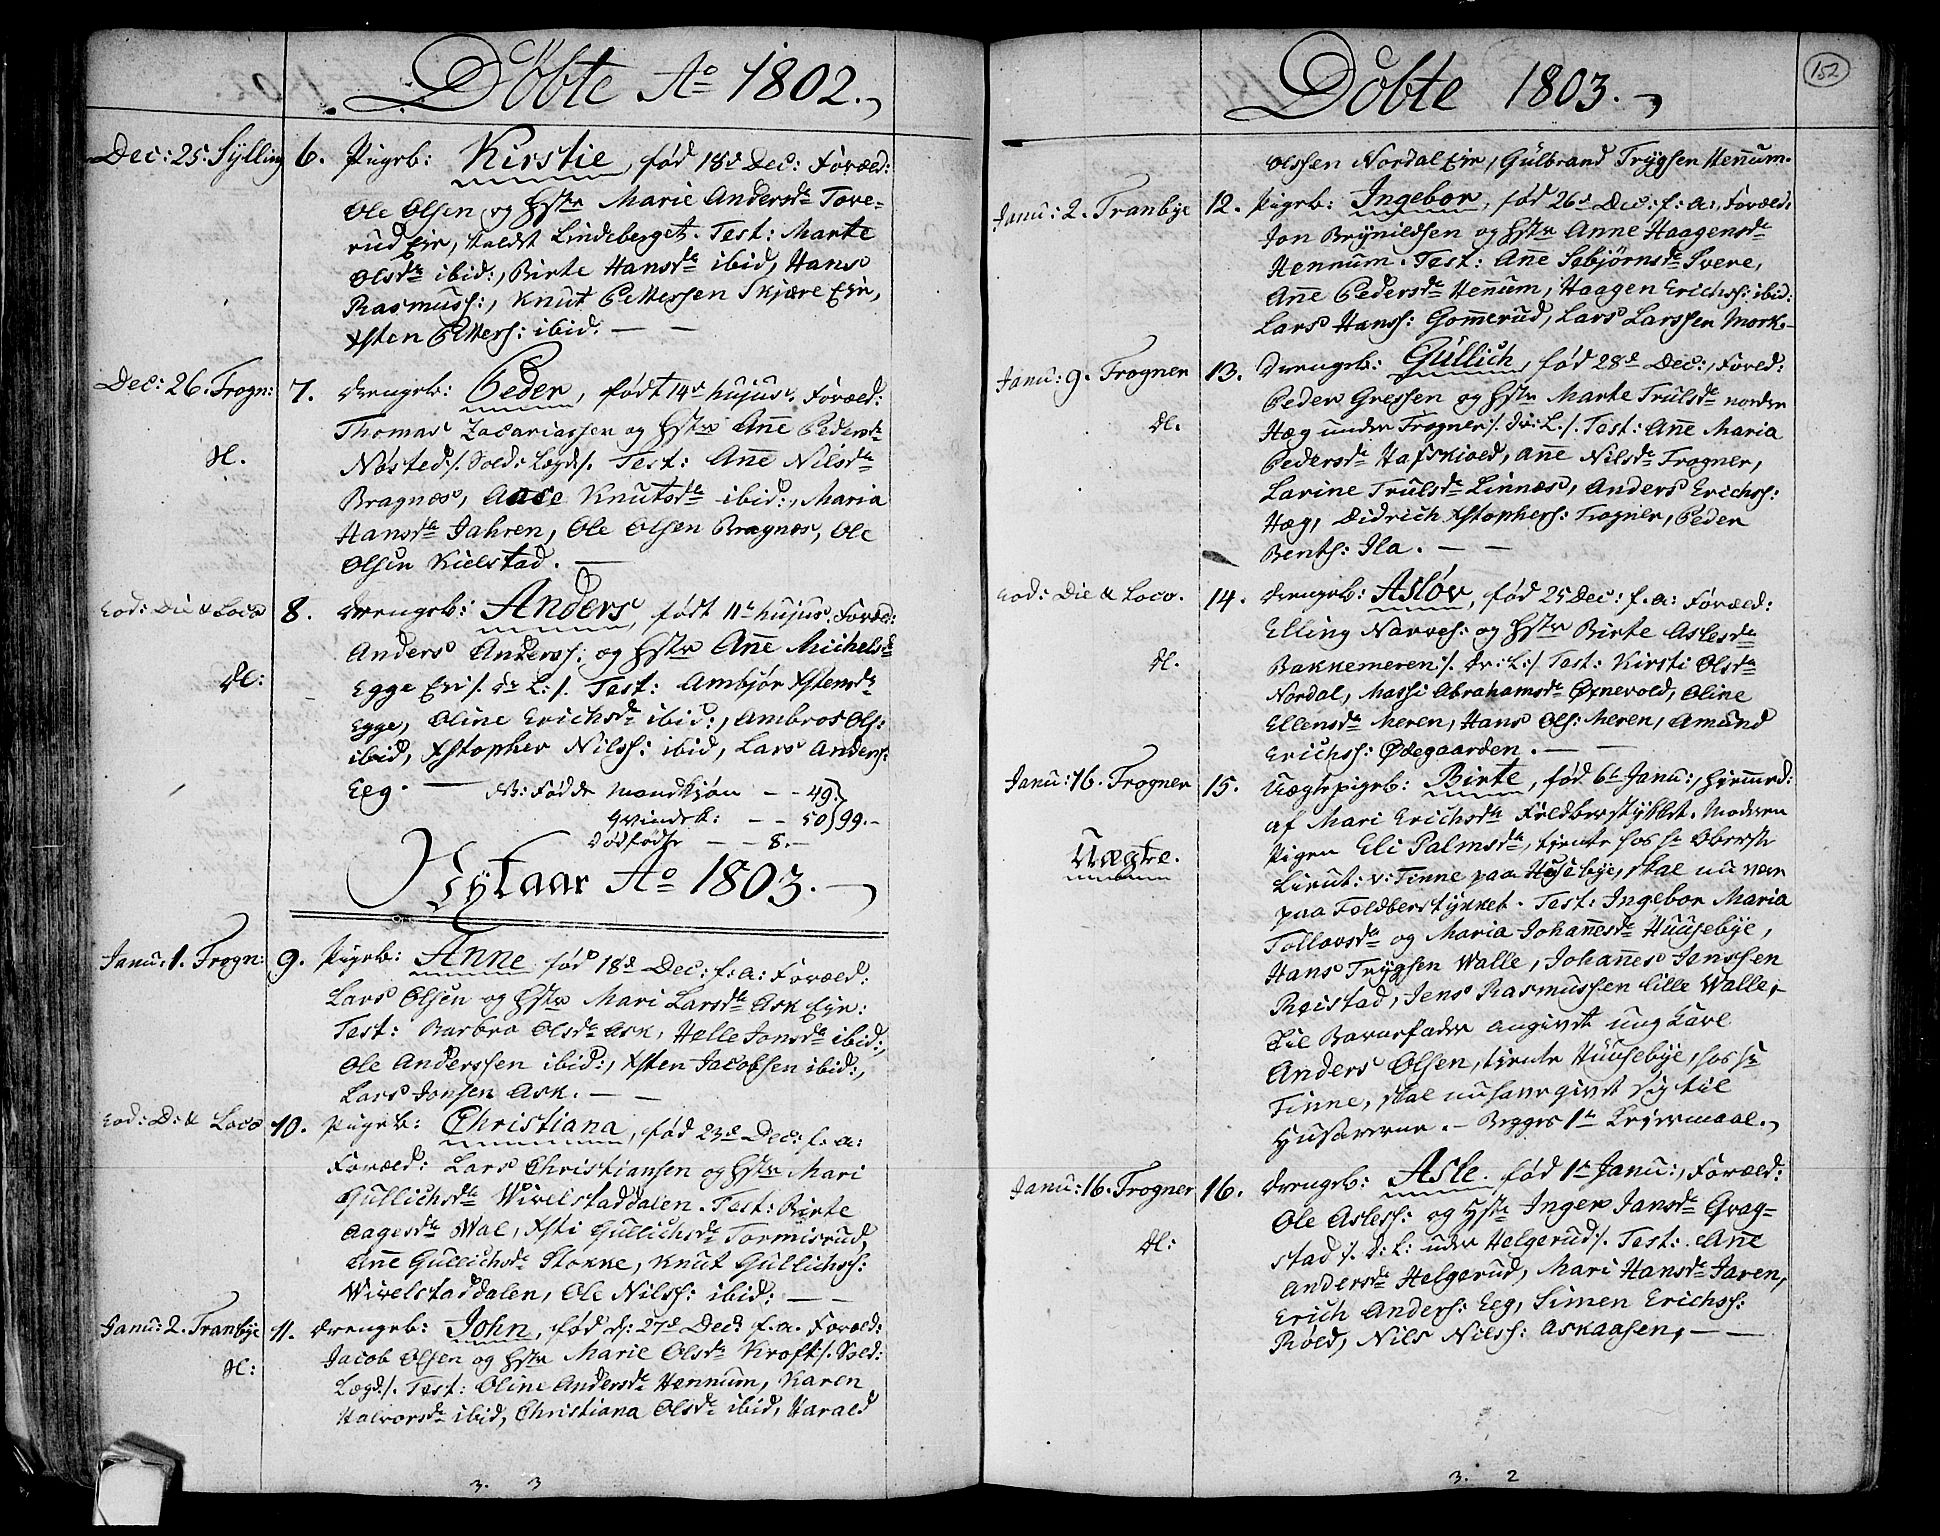 Döbte Ao 1802.
Dec: 25. Sylling 6. Pigeb: Kirstie, fød 18d Dec: Foræld:
Ole Olsen og Hstr Marie Andersdr Tove-
rud Eje, Lindeberget. Test: Marte
Olsdr ibid:, Birte Hansdr ibid, Hans
Rasmuss:, Knut Pettersen Skjære Eje,
Xsten Petters: ibid. — —
Dec: 26. Trogn: 7. Drengeb: Peder, født 14d hujus. Foræld:
Thomas Zacariassen og Hstr Anne Pedersdr
dl. Nøsted /. Sold: Lægd /. Test: Anne Nilsdr
Bragnæs, Aase Knutsdr ibid:, Maria
Hansdr Jahren, Ole Olsen Bragnæs, Ole
Olsen Kielstad. —
Eod: Die & Loco 8. Drengeb: Anders, født 11d hujus. Foræld:
Anders Anderss: og Hstr Anne Michelsd
dl: Egge Eje /. dr L: /. Test: Ambjør Xstensdr
Egge, Oline Erichsdr ibid:, Ambros Ols:
ibid, Xstopher Nilss: ibid, Lars Anders:
Eeg. — NB: Fødde Mandkjøn — — 49.
Qvindek: — — 50 } 99. —
Dødfødte — — 8. —
Nytaar Ao 1803. —
Janu: 1. Trogn: 9. Pigeb: Anne fød 18d Dec: f: a: Foræld:
Lars Olsen og Hstr Mari Larsdr Ask Eje:
Test: Barbro Olsdr Ask, Helle Jonsdr ibid:,
Ole Anderssen ibid:, Xsten Jacobsen ibid:,
Lars Jonsen Ask. — —
Eod: D: & Loco 10. Pigeb: Christiana, fød 23d Dec: f: a:
Foræld: Lars Christiansen og Hstr Mari
Gullichsdr Wivelstaddalen. Test: Birte
Aagesdr Wal, Xsti Gullichsdr Tormisrud,
Anne Gullichsdr Stokke, Knut Gullichss:
Wivelstaddalen, Ole Nilss: ibid: — —
Janu: 2. Tranbye 11. Drengeb: John, fød d: 27d Dec: f. a. Foræld:
dl: Jacob Olsen og Hstr Marie Olsdr Kroft /. Sold:
Lægd /. Test: Oline Andersdr Hennum, Karen
Halvorsdr ibid, Christiana Olsdr ibid, Harald
3. 3
Döbte 1803. —
152
Olssen Nordal Eje, Gulbrand Trygsen Hennum.
Janu: 2. Tranbye 12. Pigeb: Ingebor, fød 26d Dec: f: a:, Foræld:
Jon Brynildsen og Hstr Anne Haagensdr
Hennum. Test: Ane Sebjørnsdr Svere,
Anne Pedersdr Hennum, Haagen Erichs: ibid:
Lars Hanss: Gommerud, Lars Larssen Mork. —
Janu: 9. Trogner 13. Drengeb: Gullich, fød 28d Dec:, Foræld:
Peder Gressen og Hstr Marte Trulsdr norder
dl. Hæg under Trogner /. dr: L. /. Test: Anne Maria
Pedersdr Hafskiold, Anne Nilsdr Trogner,
Larine Trulsdr Linnæs, Anders Erichss:
Hæg, Didrich Xstophers: Trogner, Peder
Bents: Ila. — —
Eod: Die & Loco. 14. Drengeb: Asløv, fød 25 Dec: f: a: Foræld:
Elling Narves: og Hstr Birte Aslesdr
dl. Bakkemeren /. dr: L: /. Test: Kirsti Olsdr
Nordal, Massi Abrahamsdr Øxnevold, Oline
Ellensdr Meren, Hans Ols: Meren, Amund
Erichss: Ødegaarden. — —
Janu: 16. Trogner 15. Uægte pigeb: Birte, fød 6d Janu:, hjemmed:
af Mari Erichsdr Foldberstykket. Moderen
Uægte. Pigen Eli Palmsdr, tjente hos Hr Oberst-
Lieut: v: Tinne paa Husebye, skal nu være
paa Foldberstykket. Test: Ingebor Maria
Tollovsdr og Maria Johannesdr Huusebye,
Hans Trygsen Walle, Johannes Janssen
Reistad, Jens Rasmussen lille Walle, —
til Barnefader angivet ung Karl
Anders Olsen, tjente Huusebye, hos Hr
Tinne, skal nu have givet sig til
Husarerne. — Begges 1te Lejermaal.
Janu: 16. Trogner 16. Drengeb: Asle. fød 1d Janu:, Foræld:
Ole Asless: og Hstr Inger Jansdr Qvag-
dl: stad /. d: L: under Helgerud /. Test: Ane
Andersdr Helgerud, Mari Hansdr Jaren,
Erich Anders: Eeg, Simen Erichss:
Røld, Nils Nilss: Askaasen, — —
3. 2